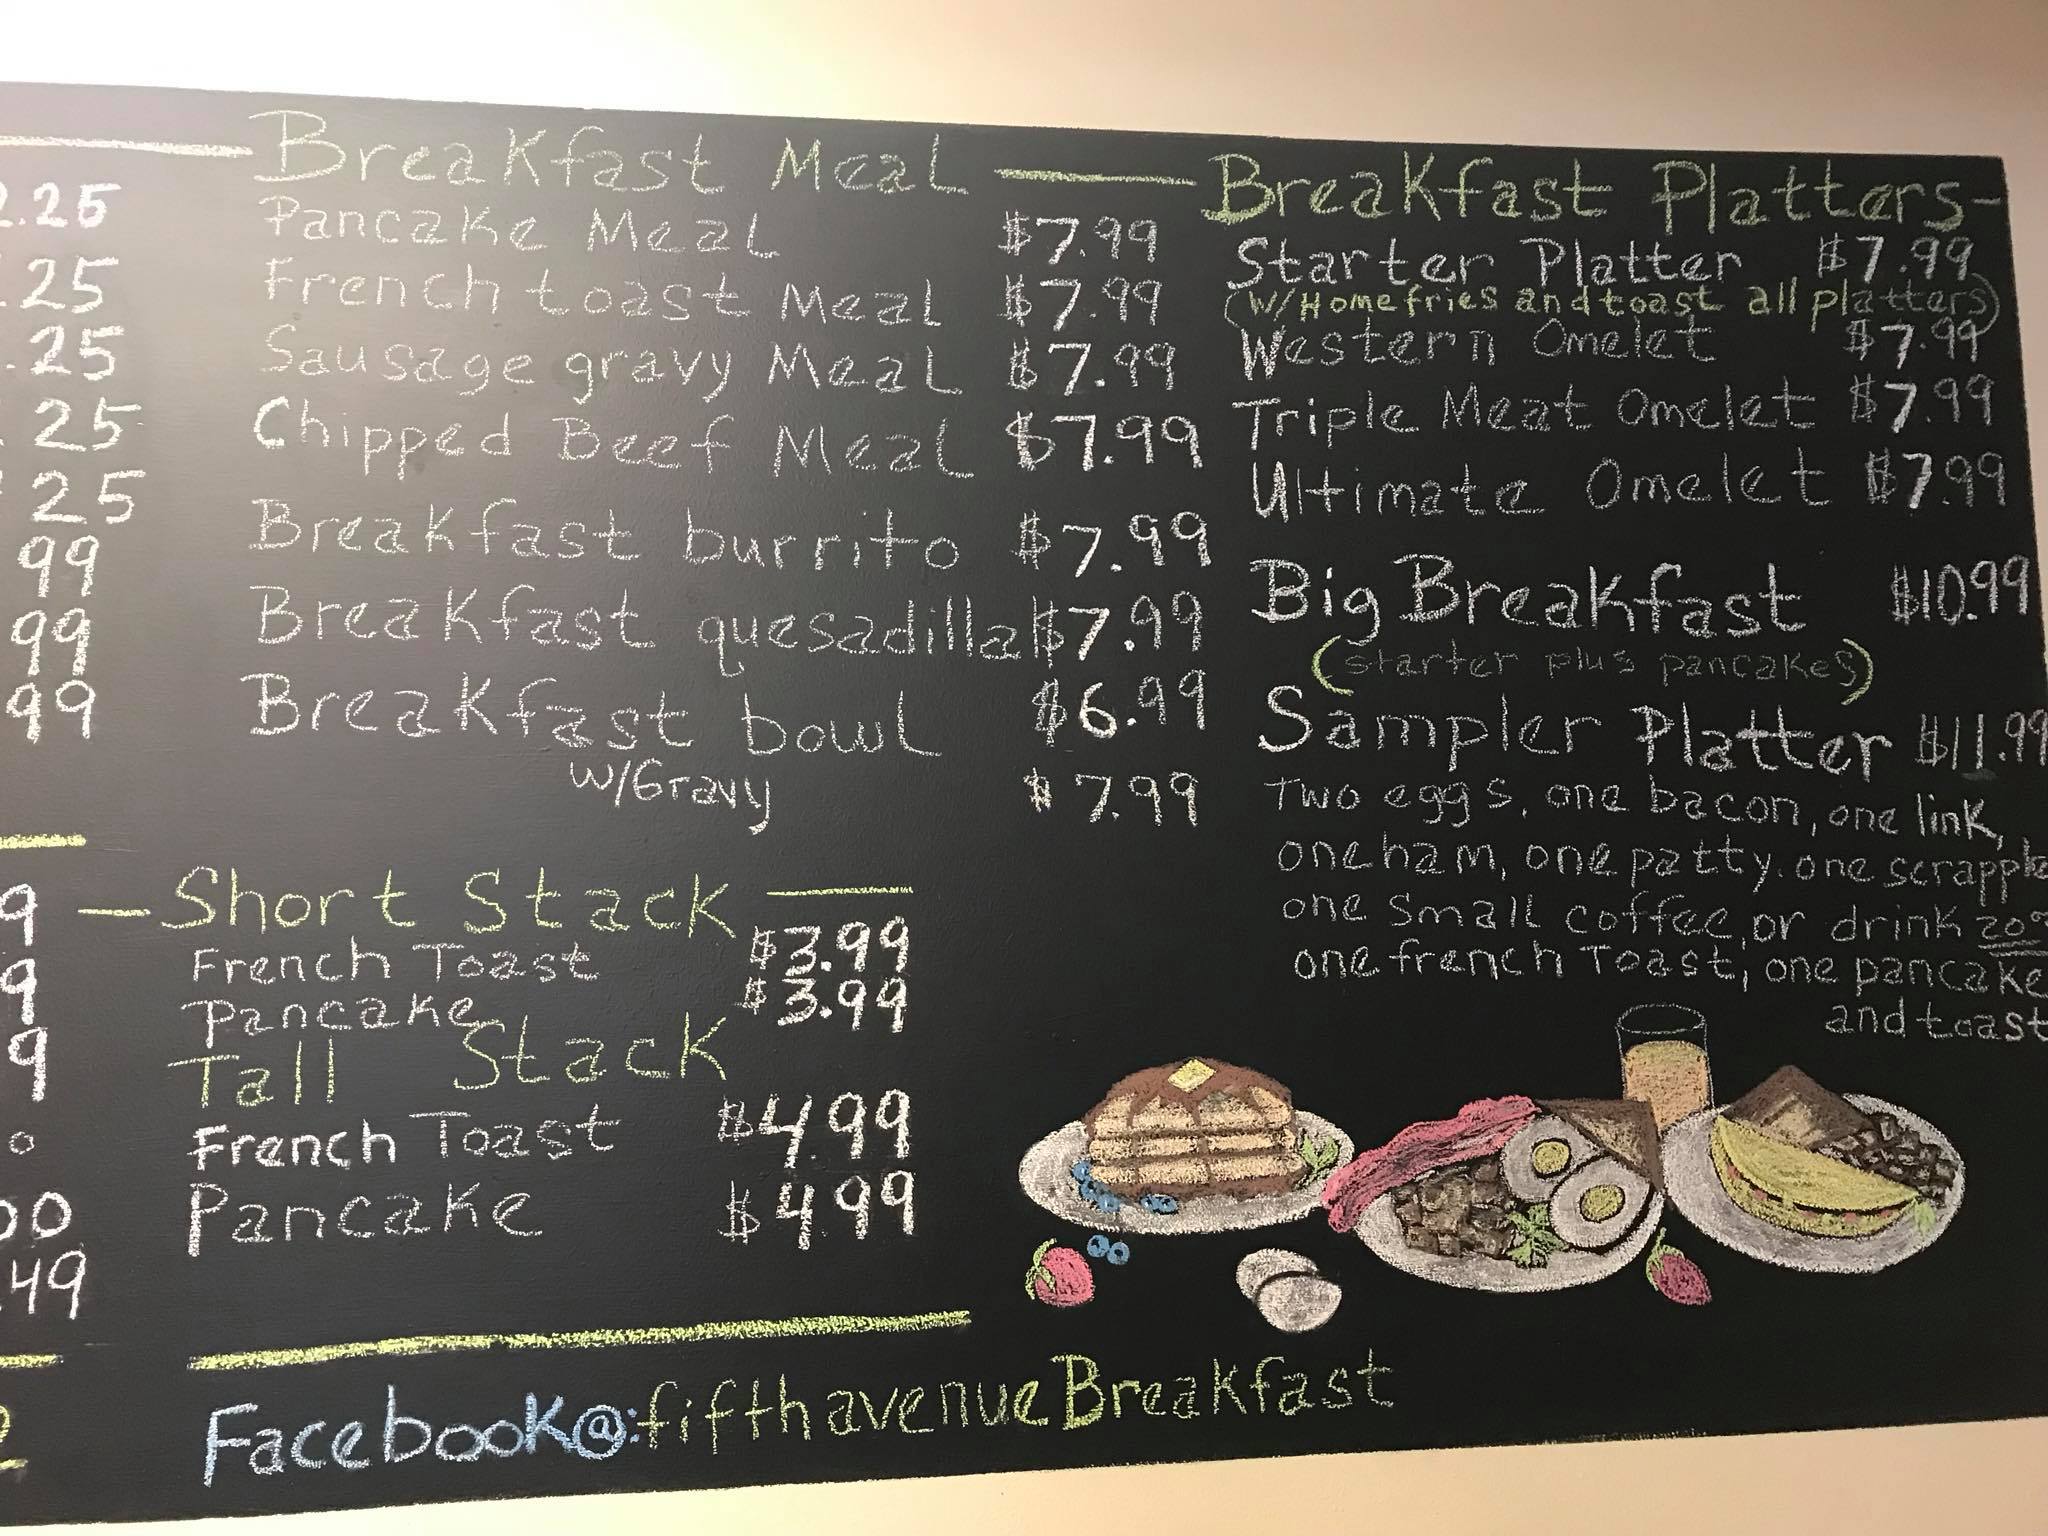 2.25
.25
.25
25
25
99
99
99
9
9
9
00
.49
Breakfast Meal
Pancake Meal $7.99
French toast Meal $7.99
Sausage gravy Meal $7.99
Chipped Beef Meal $7.99
Breakfast burrito $7.99
Breakfast quesadilla $7.99
Breakfast bowl $6.99
W/Gravy $7.99
Short Stack
French Toast $3.99
Pancake $3.99
Tall Stack
French Toast $4.99
Pancake $4.99
Breakfast Platters
Starter Platter $7.99
(W/Homefries and toast all platters)
Western Omelet $7.99
Triple Meat Omelet $7.99
Ultimate Omelet $7.99
Big Breakfast $10.99
(starter plus pancakes)
Sampler Platter $11.99
Two eggs, one bacon, one link,
one ham, one patty. one scrapple
one small coffee, or drink
one french Toast, one pancake
and toast
Facebook@:fifthavenueBreakfast